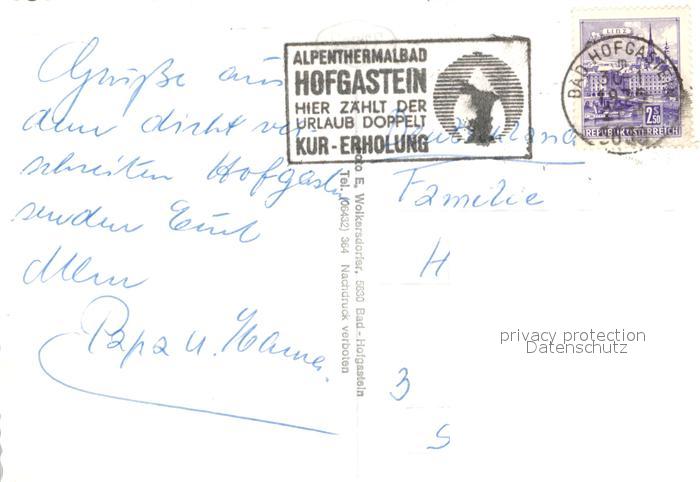 Grüße aus
dem dicht ver-
schneiten Hofgastein
senden Euch
Papa u.
ALPENTHERMALBAD
HOFGASTEIN
HIER ZÄHLT DER
URLAUB DOPPELT
KUR-ERHOLUNG
LINZ
BAD HOFGASTEIN
2.50
REPUBLIK ÖSTERREICH
Deutschland
Familie
H
3
S
Foto E. Wolkersdorfer, 5630 Bad-Hofgastein
Tel. (06432) 364 Nachdruck verboten
privacy protection
Datenschutz